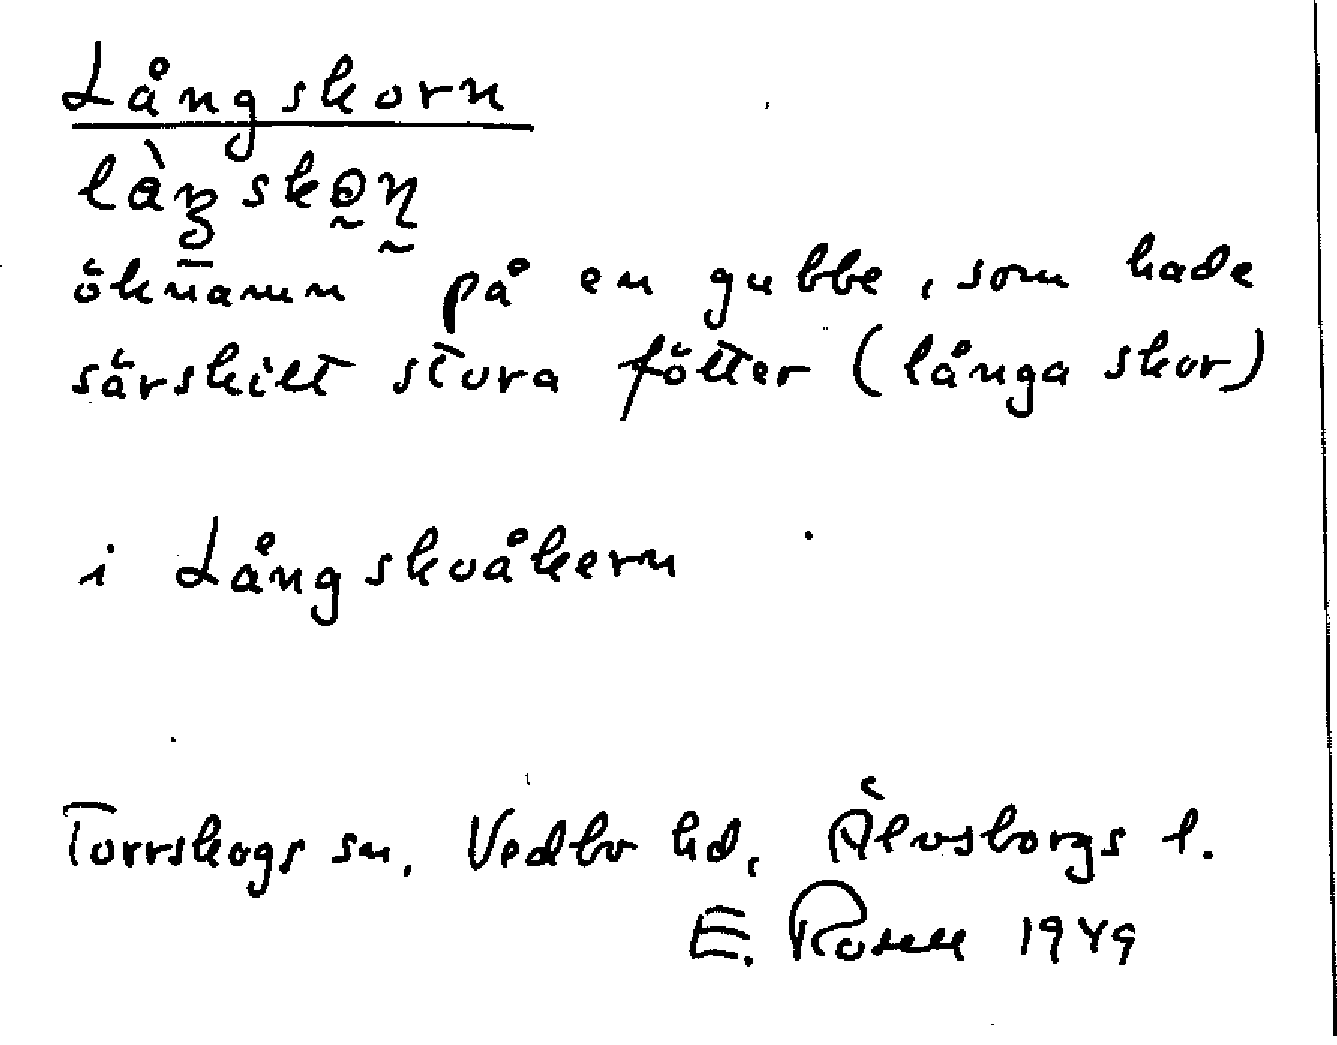 Långskorn
öknamn på en gubbe, som hade
särskilt stora fötter (långa skor)
i Långskoåkern
Torrskogs sn. Vedbo hd, Älvsborgs l.
E. Rosell 1949